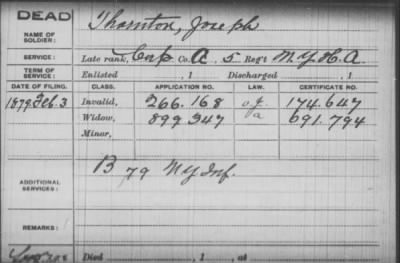 DEAD
NAME OF SOLDIER: Thornton, Joseph
SERVICE: Late rank, Corp Co. A, 5 Reg't N.Y.H.A.
TERM OF SERVICE: Enlisted , 1 Discharged , 1
DATE OF FILING. CLASS. APPLICATION NO. LAW. CERTIFICATE NO.
1879 Feb. 3 Invalid, 266.168 174.647
Widow, 899.347 691.794
Minor,
ADDITIONAL SERVICES: B 79 N Y Inf.
REMARKS:
Died , 1 , at